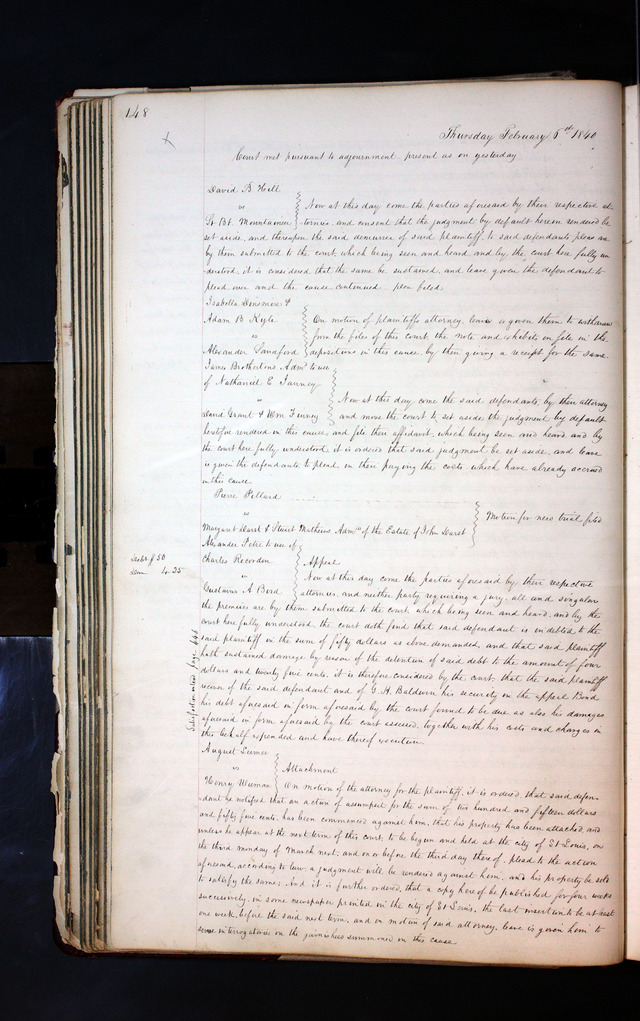 148
Thursday February 6th 1840
Court met pursuant to adjournment present as on yesterday
David B Hill
vs
St. Bt. Mountaineer
Now at this day come the parties aforesaid by their respective at-
-tornies, and consent that the judgment by default hereon rendered be
set aside, and thereupon the said demurrer of said plaintiff, to said defendants pleas are
by them submitted to the court, which being seen and heard and by the court here fully un
derstood, it is considered that the same be sustained, and leave given the defendant to
plead over and the cause continued plea filed
Isabella Densmore &
Adam B Kyle
vs
Alexander Sandford
On motion of plaintiffs attorney, leave is given them to withdraw
from the files of this court the note and exhibets on file in the
depositions in this cause, by their giving a receipt for the same
James Brothertons Admr to use
of Nathaniel E
vs
David Grant & Wm
Now at this day come the said defendants, by their attorney
and move the court to set aside the judgment by default
heretofore rendered in this cause, and file their affidavit, which being seen and heard and by
the court here fully understood, it is ordered that said judgment be set aside, and leave
is given the defendants to plead, on their paying the costs which have already accrued
in this cause
Pierre Pillard
vs
Margaret Darst & Stuart Mathews Admrs of the Estate of John Darst
Motion for new trial filed
Alexander Petre to use of
Charles Recorden
vs
Gustavus A Bird
Debt $50
Dam 4.25
Appeal
Now at this day come the parties aforesaid by their respective
attornies, and neither party requiring a jury, all and singular
the premises are by them submitted to the court, which being seen and heard, and by the
court here fully understood, the court doth find that said defendant is indebted to the
said plaintiff in the sum of fifty dollars as above demanded, and that said plaintiff
hath sustained damage by reason of the detention of said debt to the amount of four
dollars and twenty five cents, it is therefore considered by the court, that the said plaintiff
recover of the said defendant and of G. H. Baldwin his security on the appeal Bond
his debt aforesaid in form aforesaid by the court found to be due as also his damages
aforesaid in form aforesaid by the court assessed, together with his costs and charges in
this behalf expended and have thereof execution
Satisfaction entered page
August
vs
Henry
Attachment
On motion of the attorney for the plaintiff, it is ordered, that said defen-
dant be notified that an action of assumpsit for the sum of two hundred and fifteen dollars
and fifty five cents, has been commenced against him, that his property has been attached, and
unless he appear at the next term of this court, to be begun and held at the city of St Louis, on
the third monday of March next, and on or before the third day thereof, plead to the action
aforesaid, according to law, a judgment will be rendered against him, and his property be sold
to satisfy the same. And it is further ordered, that a copy hereof be published for four weeks
successively, in some newspaper printed in the city of St Louis, the last insertion to be at least
one week, before the said next term, and on motion of said attorney, leave is given him to
interrogatories on the garnishees summoned in this cause